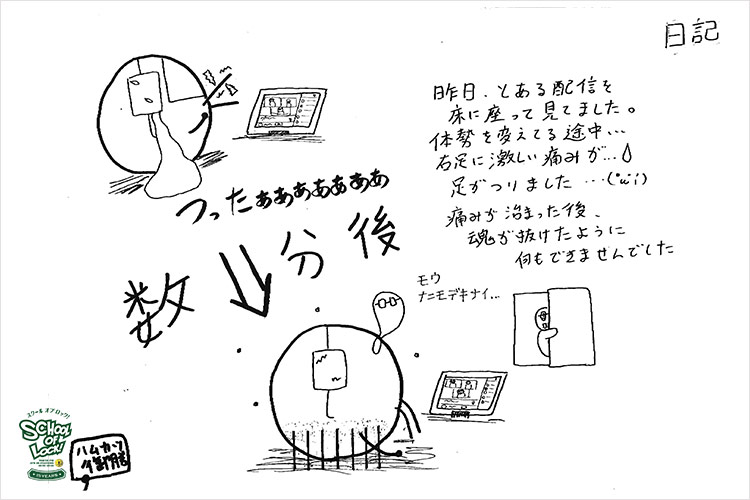 日記
昨日、とある配信を
床に座って見てました。
体勢を変えてる途中…
右足に激しい痛みが…
足がつりました…(°ω°;)
痛みが治まった後、
魂が抜けたように
何もできませんでした
つったぁぁぁぁぁぁぁ
数分後
モウ
ナニモデキナイ...
スクール オブ ロック!
SCHOOL
OF
LOCK!
ハムカツ